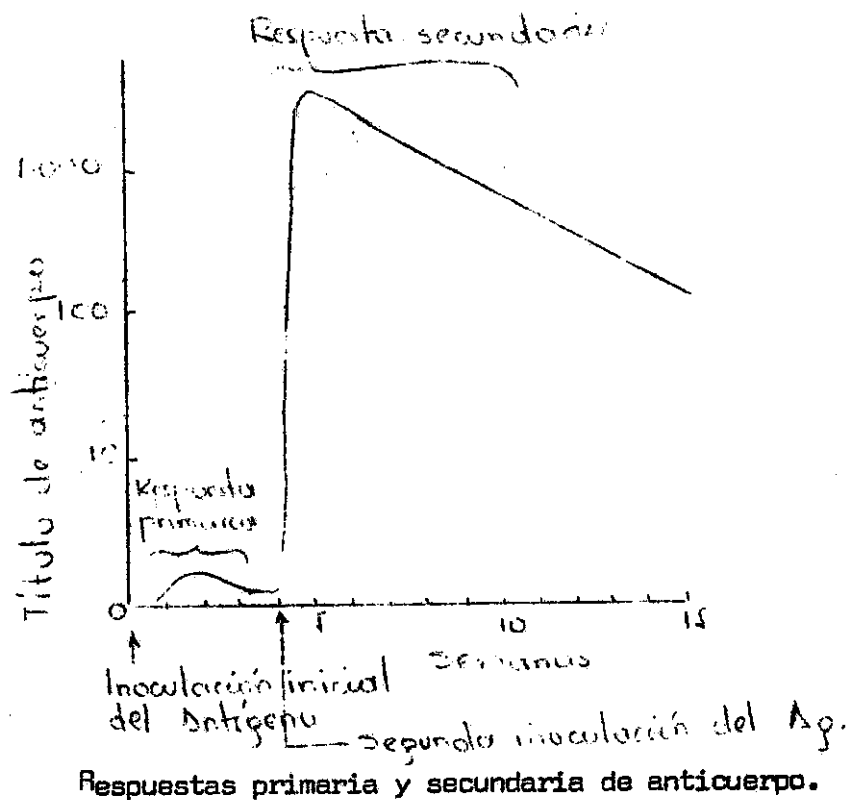 Respuesta secundaria
1000
100
10
0
Título de anticuerpo
Respuesta
primaria
5
10
15
semanas
Inoculación inicial
del Antígeno
segunda inoculación del Ag.
Respuestas primaria y secundaria de anticuerpo.